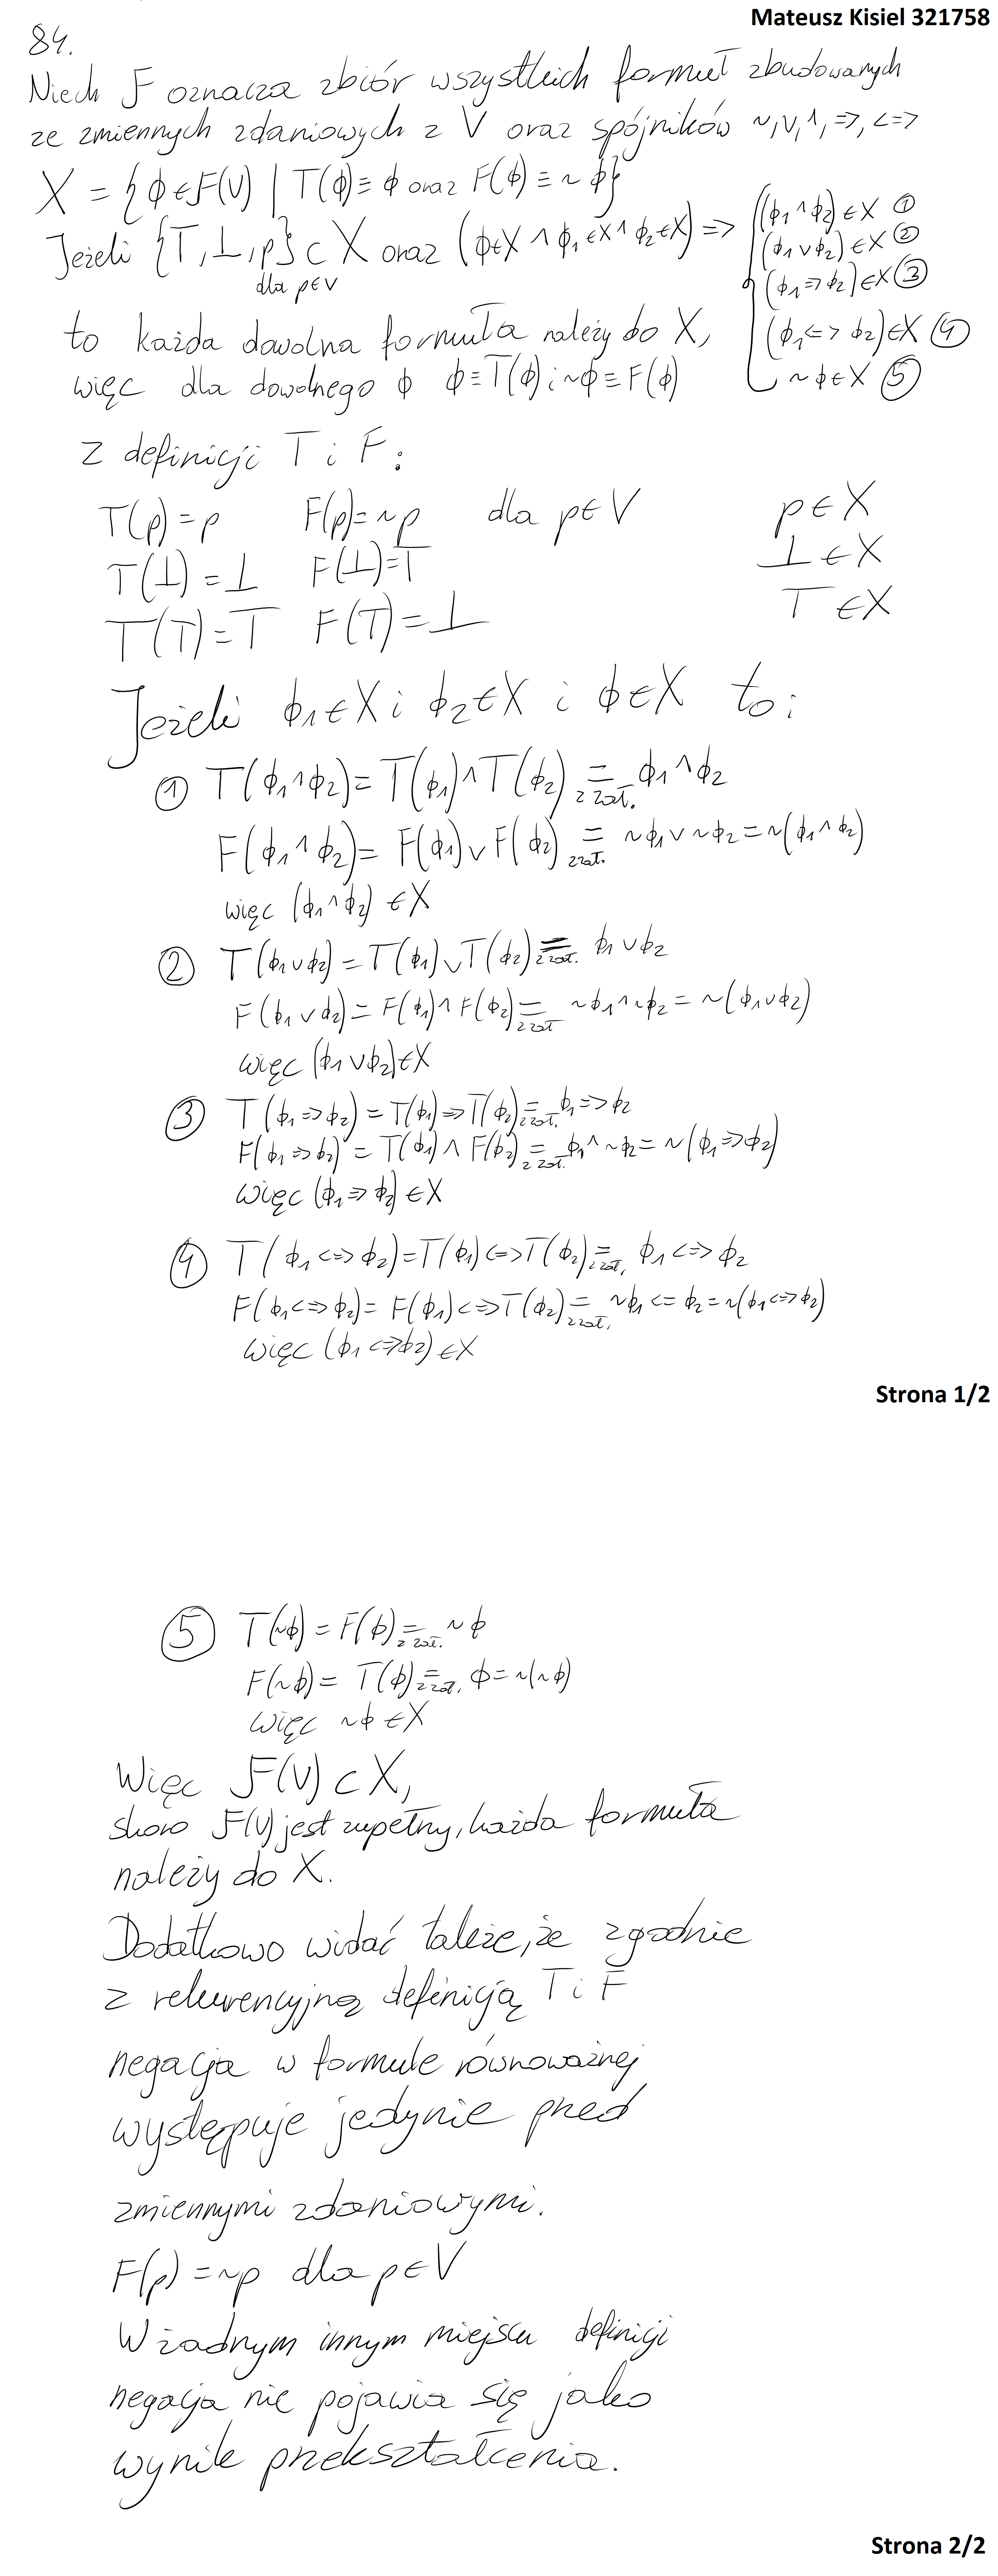 Mateusz Kisiel 321758
84.
Niech F oznacza zbiór wszystkich formuł zbudowanych
ze zmiennych zdaniowych z V oraz spójników ~,∨,∧,=>,<=>
X = {ϕ∈F(V) | T(ϕ)≡ϕ oraz F(ϕ)≡~ϕ}
Jeżeli {T,⊥,p}⊂X oraz (ϕ∈X ∧ ϕ₁∈X ∧ ϕ₂∈X) =>
dla p∈V
(ϕ₁∧ϕ₂)∈X ①
(ϕ₁∨ϕ₂)∈X ②
(ϕ₁=>ϕ₂)∈X ③
(ϕ₁<=>ϕ₂)∈X ④
~ϕ∈X ⑤
to każda dowolna formuła należy do X,
więc dla dowolnego ϕ ϕ≡T(ϕ) i ~ϕ≡F(ϕ)
z definicji T i F:
T(p)=p F(p)=~p dla p∈V p∈X
T(⊥)=⊥ F(⊥)=T ⊥∈X
T(T)=T F(T)=⊥ T∈X
Jeżeli ϕ₁∈X i ϕ₂∈X i ϕ∈X to:
① T(ϕ₁∧ϕ₂)=T(ϕ₁)∧T(ϕ₂) = z zał. ϕ₁∧ϕ₂
F(ϕ₁∧ϕ₂)= F(ϕ₁)∨F(ϕ₂) = z zał. ~ϕ₁∨~ϕ₂=~(ϕ₁∧ϕ₂)
więc (ϕ₁∧ϕ₂)∈X
② T(ϕ₁∨ϕ₂)=T(ϕ₁)∨T(ϕ₂) = z zał. ϕ₁∨ϕ₂
F(ϕ₁∨ϕ₂)=F(ϕ₁)∧F(ϕ₂) = z zał ~ϕ₁∧~ϕ₂=~(ϕ₁∨ϕ₂)
więc (ϕ₁∨ϕ₂)∈X
③ T(ϕ₁=>ϕ₂)=T(ϕ₁)=>T(ϕ₂) = z zał. ϕ₁=>ϕ₂
F(ϕ₁=>ϕ₂)=T(ϕ₁)∧F(ϕ₂) = z zał. ϕ₁∧~ϕ₂=~(ϕ₁=>ϕ₂)
więc (ϕ₁=>ϕ₂)∈X
④ T(ϕ₁<=>ϕ₂)=T(ϕ₁)<=>T(ϕ₂) = z zał. ϕ₁<=>ϕ₂
F(ϕ₁<=>ϕ₂)=F(ϕ₁)<=>T(ϕ₂) = z zał. ~ϕ₁<=ϕ₂=~(ϕ₁<=>ϕ₂)
więc (ϕ₁<=>ϕ₂)∈X
Strona 1/2
⑤ T(~ϕ)=F(ϕ) = z zał. ~ϕ
F(~ϕ)=T(ϕ) = z zał. ϕ=~(~ϕ)
więc ~ϕ∈X
Więc F(V)⊂X,
skoro F(V) jest zupełny, każda formuła
należy do X.
Dodatkowo widać także, że zgodnie
z rekurencyjną definicją T i F
negacja w formule równoważnej
występuje jedynie przed
zmiennymi zdaniowymi.
F(p)=~p dla p∈V
W żadnym innym miejscu definicji
negacja nie pojawia się jako
wynik przekształcenia.
Strona 2/2